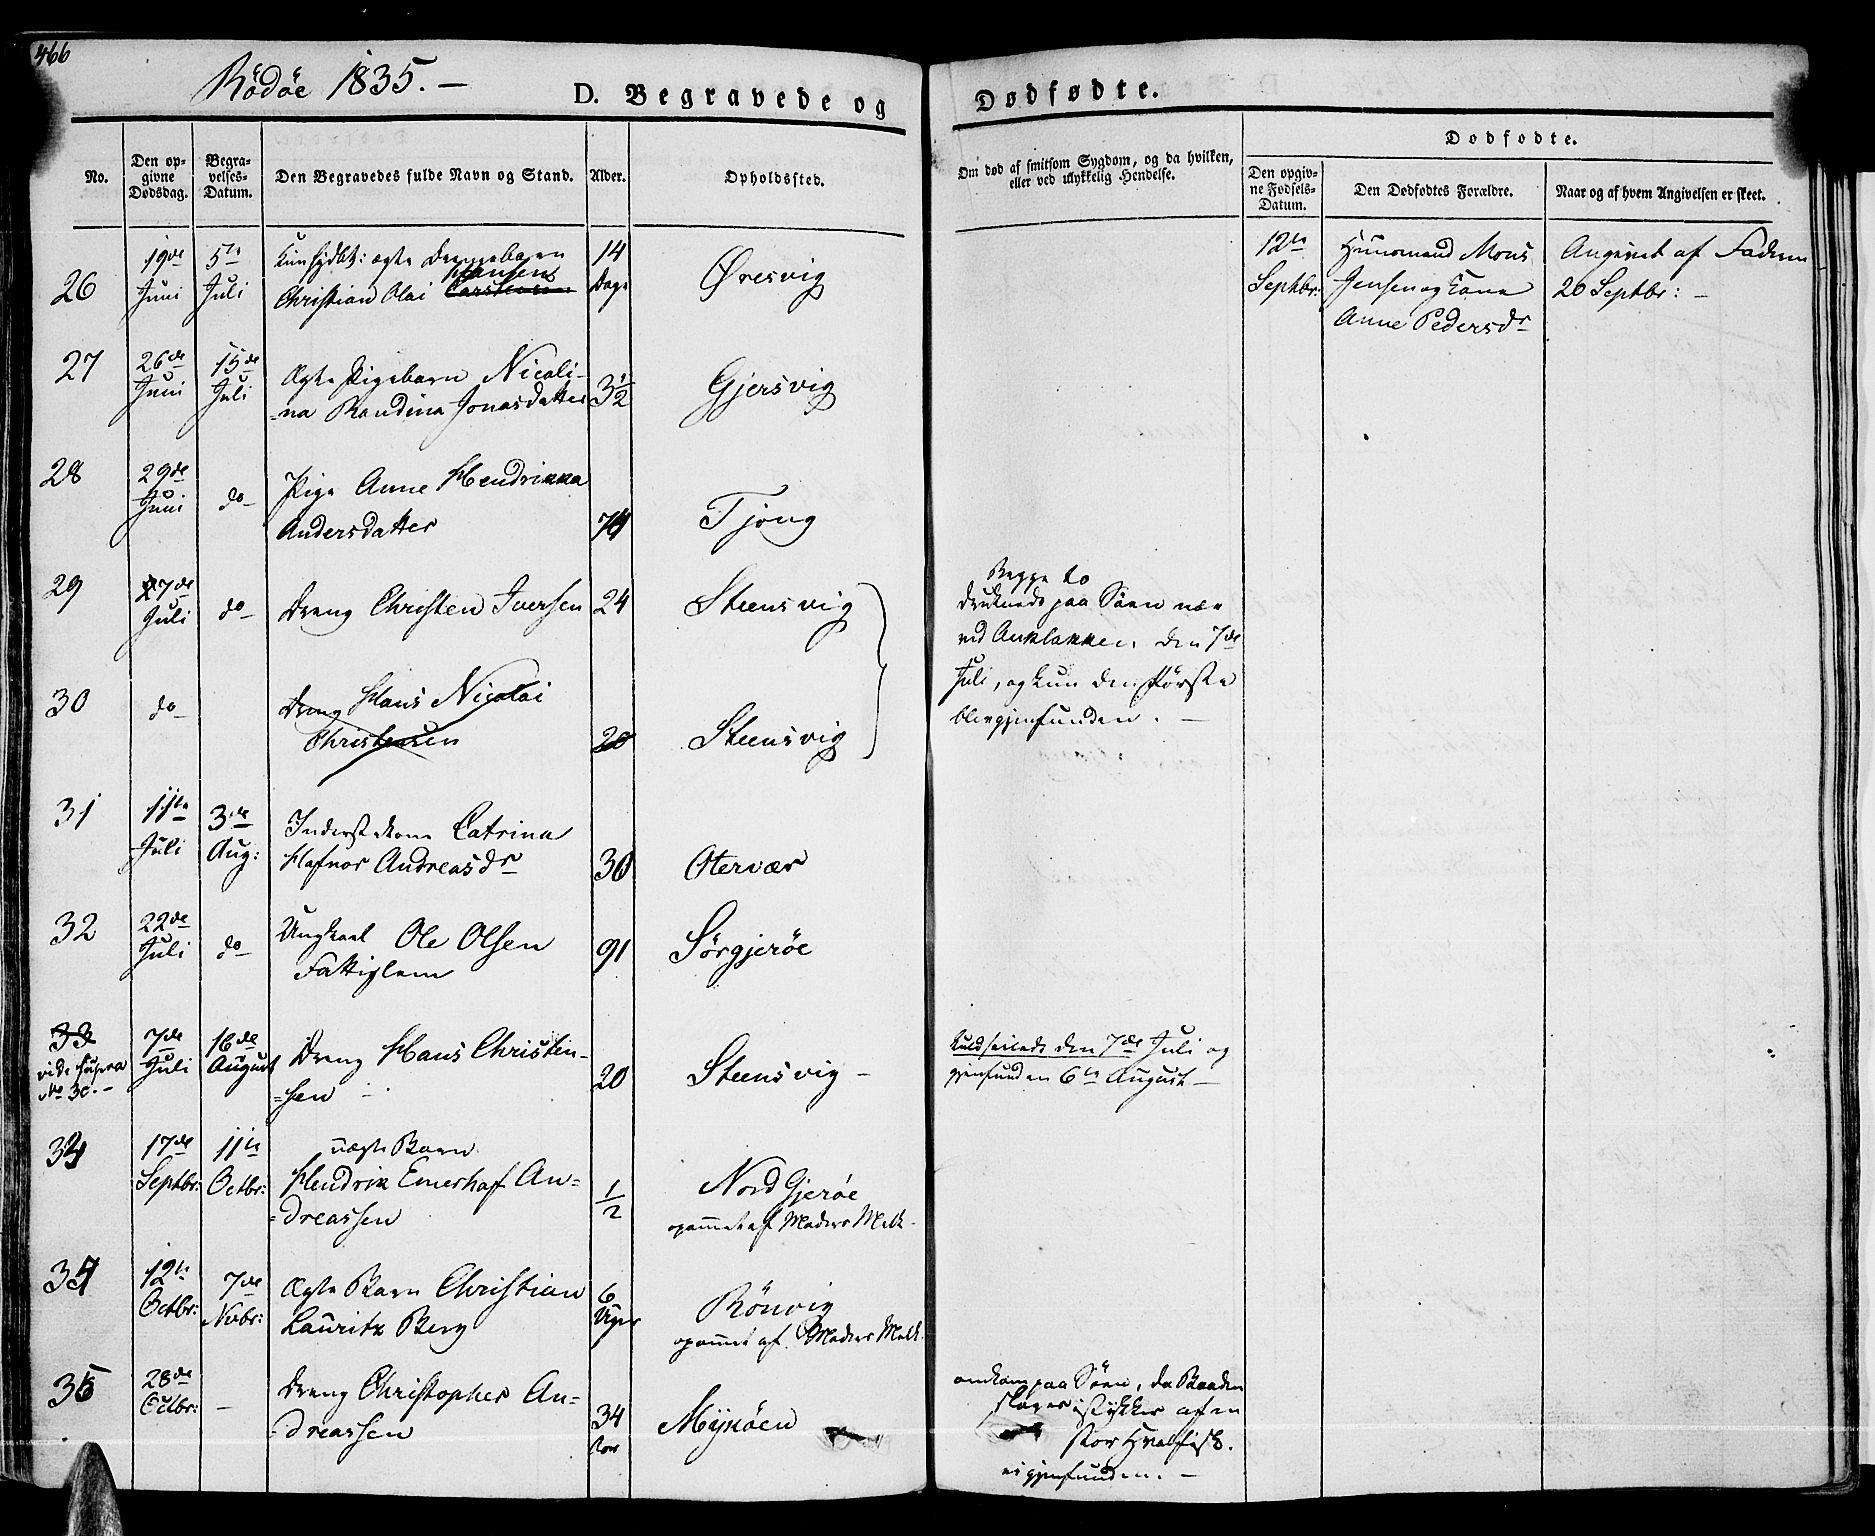 466
Rödöe 1835. –
D. Begravede og
Dødfødte.
No.
Den op-
givne
Dødsdag.
Begra-
velses-
Datum.
Den Begravedes fulde Navn og Stand.
Alder.
Opholdssted.
Om død af smitsom Sygdom, og da hvilken,
eller ved ulykkelig Hendelse.
Dødfødte.
Den opgiv-
ne Fødsels-
Datum.
Den Dødfødtes Forældre.
Naar og af hvem Angivelsen er skeet.
26
19de
Juni
5te
Juli
ægte Drengebarn
Hansen
Christian Olai Carstensen
14
Dage
Øresvig
12te
Septbr:
Huusmand Mons
Jensen og Kone
Anne Pedersdr
Angivet af Faderen
20 Septbr: –
27
26de
Juni
15de
Juli
Ægte Pigebarn Nicoli-
=na Randina Jonasdatter
3½
Gjersvig
28
29de
Juni
do
Pige Anne Hendrikka
Andersdatter
74
Tjong
29
7de
Juli
do
Dreng Christen Iversen
24
Steensvig
Begge to
druknede paa Søen nær
ved Anklakken den 7de
Juli, og kun den første
blev gjenfunden. –
30
do
Dreng Hans Nicolai
Christensen
20
Steensvig
31
11te
Juli
3de
Aug:
Inderst Kone Catrina
Hafnor Andreasdr
30
Otervær
32
22de
Juli
do
Ungkarl Ole Olsen
Fattiglem
91
Sörgjeröe
33
vide supra
No 30. –
7de
Juli
16de
August
Dreng Hans Christen-
=sen
20
Steensvig –
Kuldseilede den 7de Juli og
gjenfunden 6te August –
34
17de
Septbr:
11te
Octbr:
uægte Barn
Hendrik Emerhof An=
=dreassen
½
Nord Gjeröe
opammet af Moders Melk.
35
12te
Octbr:
7de
Novbr:
Ægte Barn Christian
Lauritz Berg
6
Uger
Rönvig
opammet af Moders Melk.
36
28de
Octbr:
–
Dreng Christopher An=
=dreassen
34
Aar
Mijnöen
omkom paa Søen, da Baaden
sloges i stykker af en
stor Hvalfisk.
ei gjenfunden. –